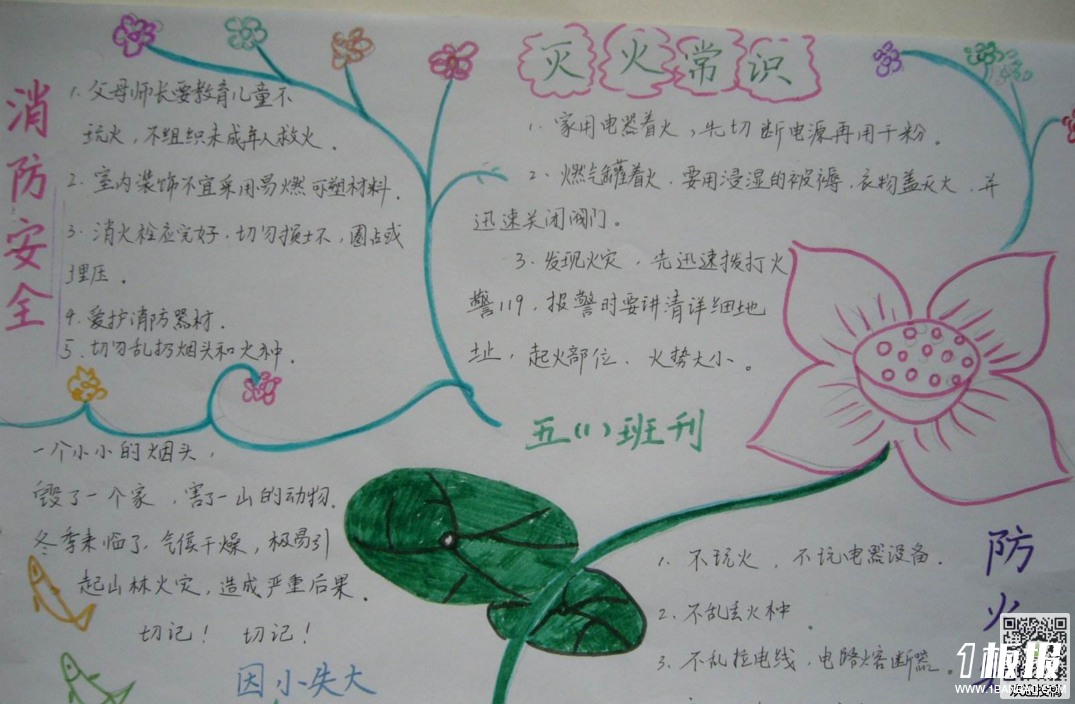 消防安全
1. 父母师长要教育儿童不
玩火，不组织未成年人救火．
2. 室内装饰不宜采用易燃可塑材料．
3. 消火栓应完好，切勿损坏，圈占或
埋压．
4. 爱护消防器材．
5. 切勿乱扔烟头和火种．
灭火常识
1. 家用电器着火，先切断电源再用干粉．
2. 燃气罐着火，要用浸湿的被褥，衣物盖灭火，并
迅速关闭阀门。
3. 发现火灾，先迅速拨打火
警119，报警时要讲清详细地
址，起火部位、火势大小。
五(1)班刊
一个小小的烟头，
毁了一个家，害了一山的动物．
冬季来临了，气候干燥，极易引
起山林火灾，造成严重后果．
切记！ 切记！
因小失大
防火
1. 不玩火，不玩电器设备．
2. 不乱丢火种．
3. 不乱拉电线，电路熔断器。
1板报
WWW.1BANBAO.COM
欢迎投稿